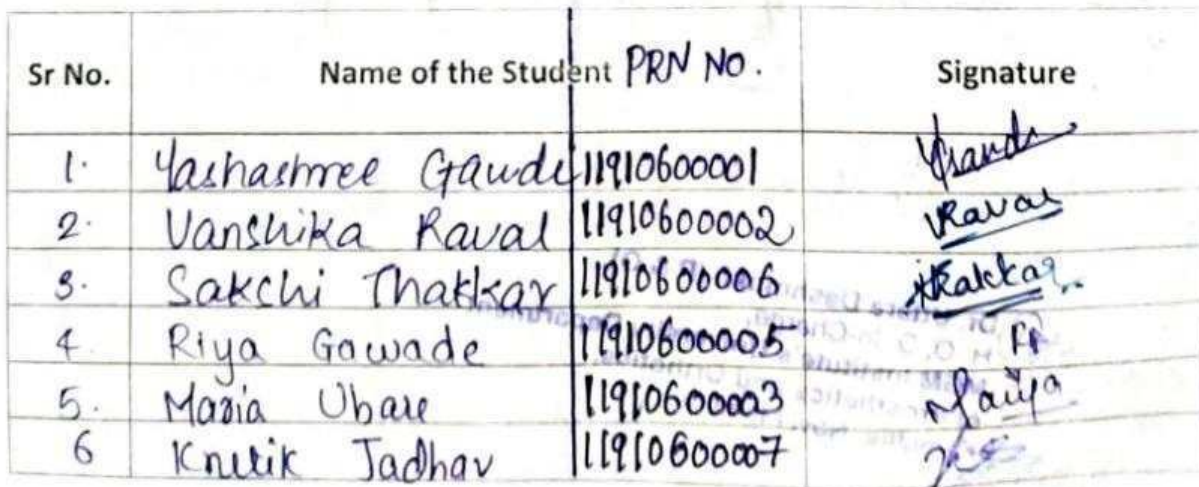 Sr No. Name of the Student PRN NO. Signature
1. Yashashree Gawde 11910600001
2. Vanshika Raval 11910600002 VRaval
3. Sakshi Thakkar 11910600006 Thakkar
4. Riya Gawade 11910600005
5. Maria Ubare 11910600003 Mariya
6 Krutik Jadhav 11910600007